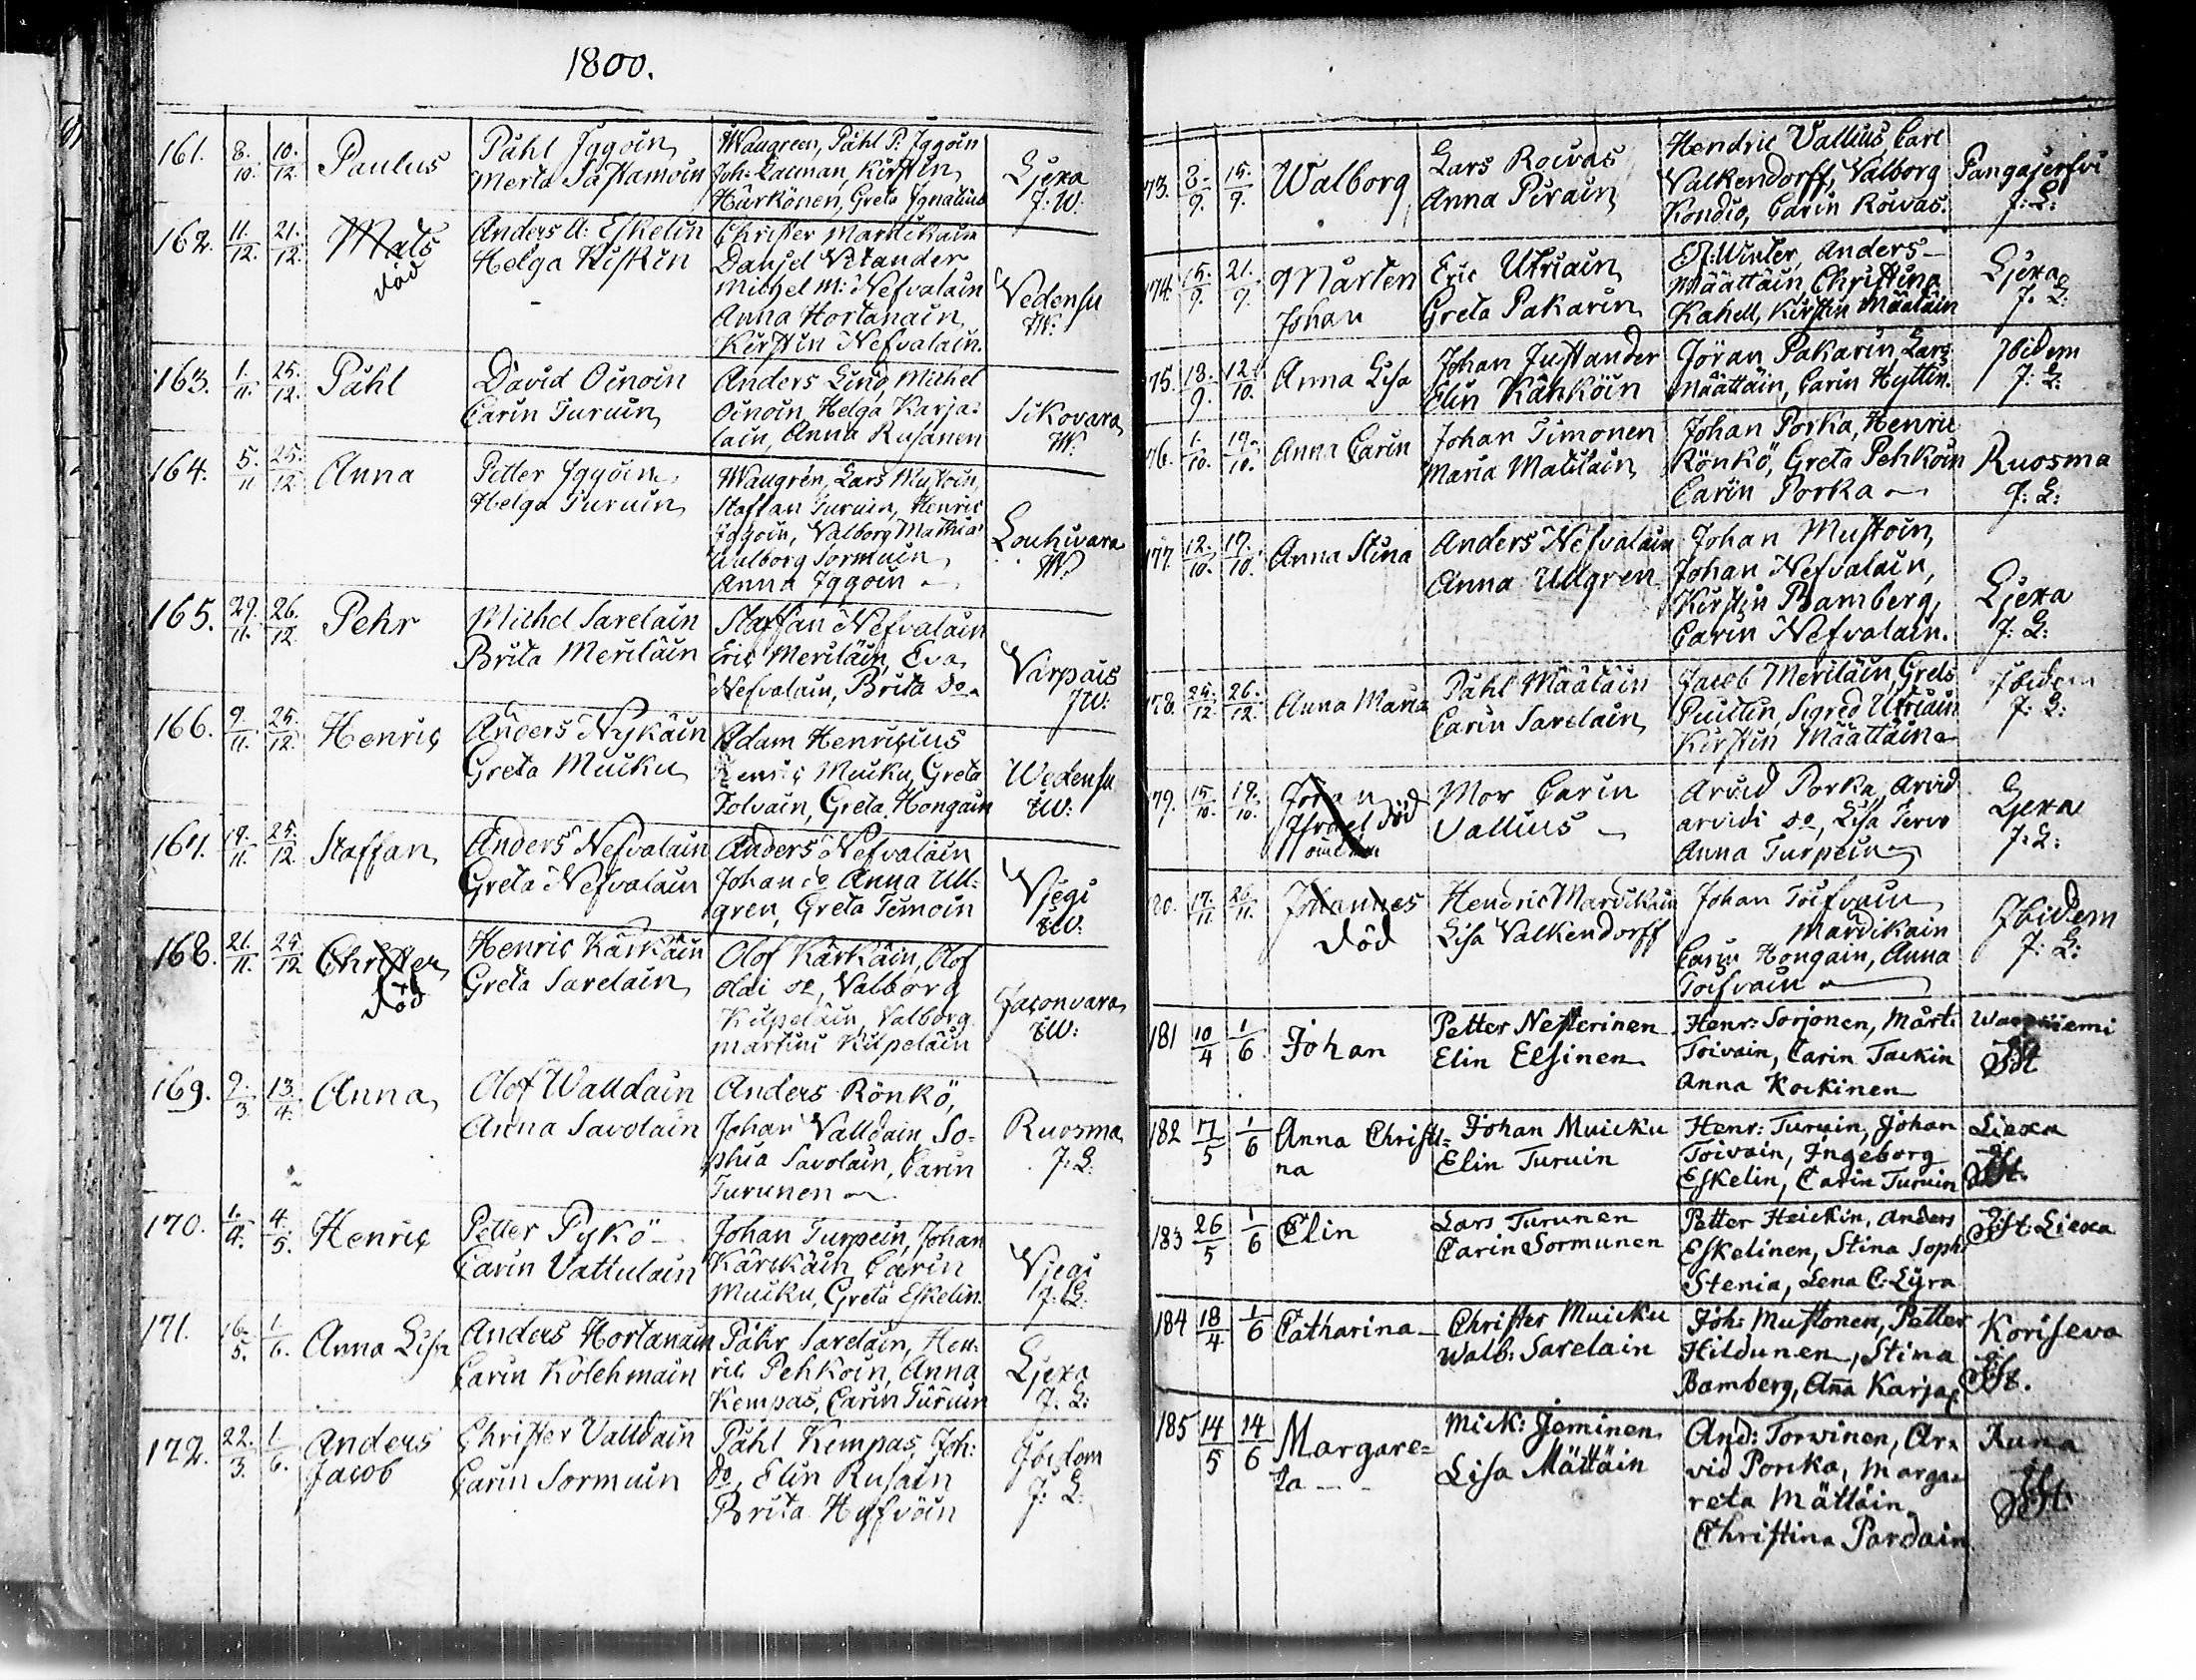 1800.
161. 8./10. 10./12. Paulus
Påhl Iggoin
Merta Sastamoin
Waugreen, Påhl P: Iggoin
Joh: Kirstin
Härkönen, Greta Ignatius
Ljexa
J: W:
162. 11./12. 21./12. Mats
död
Anders A: Eskelin
Helga Kiskin
Christer Mardikain
Daniel Vitander
Michel M: Nefvalain
Anna Hortanain
Kirstin Nefvalain.
Vedensu
W:
163. 1./11. 25./12. Påhl
David Oinoin
Carin Turuin
Anders Lind, Michel
Oinoin, Helga Karja=
lain, Anna Rusanen
Sikovara
W:
164. 5./11 25./12 Anna
Petter Iggoin
Helga Turuin
Waugrén, Lars Mustoin,
Staffan Turuin, Henric
Iggoin, Valborg Mathiæ
Walborg Sormuin
Anna Iggoin
Louhivara
W:
165. 29./11. 26./12 Pehr
Michel Sarelain
Brita Meriläin
Staffan Nefvalain
Eric Meriläin, Eva
Nefvalain, Brita do
Varpais
JW:
166. 9./11. 25./12. Henric
Anders Nykäin
Greta Muiku
Adam Henricius
Henric Muiku, Greta
Tolvain, Greta Hongain
Wedensu
W:
167. 19./11. 25./12 Staffan
Anders Nefvalain
Greta Nefvalain
Anders Nefvalain
Johan do Anna Ull=
gren, Greta Timoin
Viegi
W:
168. 21./11. 25./12 Christer
död
Henric Kärkäin
Greta Sarelain
Olof Kärkäin, Olof
Olai do, Valborg
Kilpeläin, Valborg
Martini Kilpeläin
Jaconvara
W:
169. 9./3. 13./4. Anna
Olof Walldain
Anna Savolain
Anders Rönkö,
Johan Valldain, So=
phia Savolain, Carin
Turunen
Ruosma
J: L:
170. 1./4. 4./5. Henric
Petter Pykö
Carin Vattulain
Johan Turpein, Johan
Kärckäin, Carin
Muiku, Greta Eskelin.
Viegi
J: L:
171. 16./5. 1./6. Anna Lisa
Anders Hortanain
Carin Kotehmain
Påhr Sarelain, Hen=
ric Pehkoin, Anna
Kempas, Carin Turuin
Ljexa
J. L:
172. 22./3. 1./6. Anders
Jacob
Christer Valldain
Carin Sormuin
Påhl Kempas, Joh:
do, Elin Rusain
Brita Hyfvöin
Ibidem
J: L:
73. 8./9. 15./9. Walborg
Lars Roivas
Anna Pirain
Hendric Vallius, Carl
Valkendorff, Valborg
Kondio, Carin Roivas.
Pangajerfvi
J: L:
74. 15./9. 21./9. Mårten
Johan
Eric Utriain
Greta Pakarin
Winter, Anders
Määttäin, Christina
Kahell, Kirstin Määtäin
Ljexa
J. L:
75. 18./9. 12./10. Anna Lisa
Johan Justander
Elin Kähköin
Jöran Pakarin, Lars
Määttäin, Carin Hyttin.
Ibidem
J: L:
76. 1./10. 19./10. Anna Carin
Johan Timonen
Maria Matilain
Johan Porka, Henric
Rönkö, Greta Pehkoin
Carin Porka
Ruosma
J: L:
177. 12./10. 19./10. Anna Stina
Anders Nefvalain
Anna Ullgren
Johan Mustoin,
Johan Nefvalain,
Kirstin Bamberg,
Carin Nefvalain.
Ljexa
J: L:
178. 24./12. 26./12. Anna Maria
Påhl Määtäin
Carin Sarelain
Jacob Meriläin, Grels
Puittin, Sigred Utriain
Kirstin Määttäin
Ibidem
J: L:
79. 15./10. 19./10. Johan
Israel död
Mor Carin
Vallius
Arvid Porka, Arvid
Arvidi do, Lisa Tervo
Anna Turpein
Ljexa
J: L:
80. 17./11. 26./11. Johannes
död
Hendric Mardikain
Lisa Valkendorff
Johan Toifvain
Mardikain
Carin Hongain, Anna
Toifvain
Ibidem
J: L:
181 10/4 1/6. Johan
Petter Nesterinen
Elin Elsinen
Henr: Sorjonen, Mårt:
Toivain, Carin Tackin
Anna Kockinen
182 17/5 1/6 Anna Christi=
na
Johan Muicku
Elin Turuin
Henr: Turuin, Johan
Toivain, Ingeborg
Eskelin, Carin Turuin
Liexa
JSt.
183 26/5 1/6 Elin
Lars Turunen
Carin Sormunen
Petter Heickin, Anders
Eskelinen, Stina Soph:
Stenia, Lena C: Lÿra
JSt. Liexa
184 18/4 1/6 Catharina
Christer Muicku
Walb: Sarelain
Joh: Mustonen, Petter
Hildunen, Stina
Bamberg, Aña Karja
Koriseva
JSt.
185 14/5 14/6 Margare=
ta
Mick: Jieminen
Lisa Mättäin
And: Torvinen, Ar=
vid Porcka, Marga=
reta Mättäin
Christina Pardain
JSt.